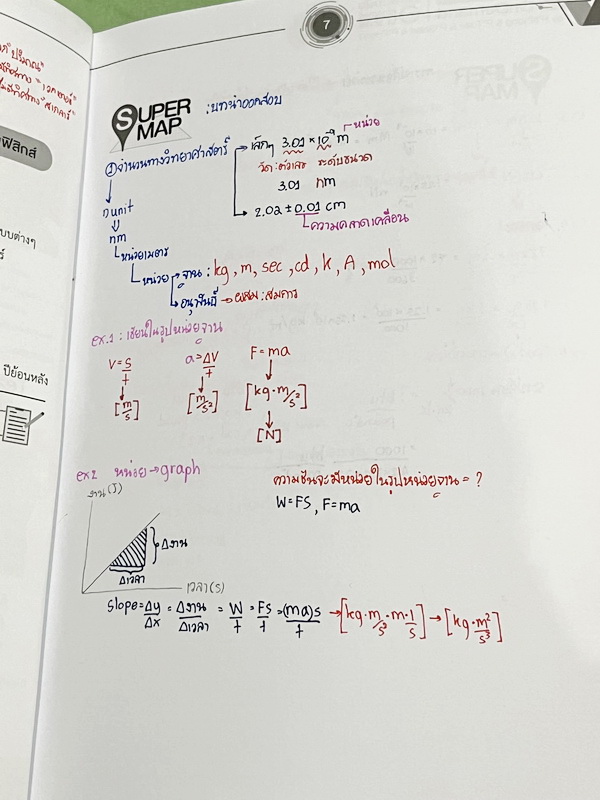 7
SUPER MAP : บทนำออกสอบ
ฟิสิกส์
① จำนวนทางวิทยาศาสตร์
เล็กๆ 3.01 × 10⁻⁹ m หน่วย
วัด : ตัวเลข ระดับขนาด
3.01 nm
2.02 ± 0.01 cm
ความคลาดเคลื่อน
nunit
nm
หน่วยเมตร
หน่วย
ฐาน : kg, m, sec, cd, K, A, mol
อนุพันธ์ → ผสม : สมการ
แบบต่างๆ
ปีย้อนหลัง
ex.1 : เขียนในรูปหน่วยฐาน
V = S/t
a = ΔV/t
F = ma
[m/s]
[m/s²]
[kg·m/s²]
[N]
ex2 หน่วย → graph
ความชันจะมีหน่วยในรูปหน่วยฐาน = ?
W = FS, F = ma
งาน (J)
Δงาน
Δเวลา
เวลา (s)
slope = Δy/Δx = Δงาน/Δเวลา = W/t = FS/t = (ma)s/t → [kg·m/s²·m·1/s] → [kg·m²/s³]